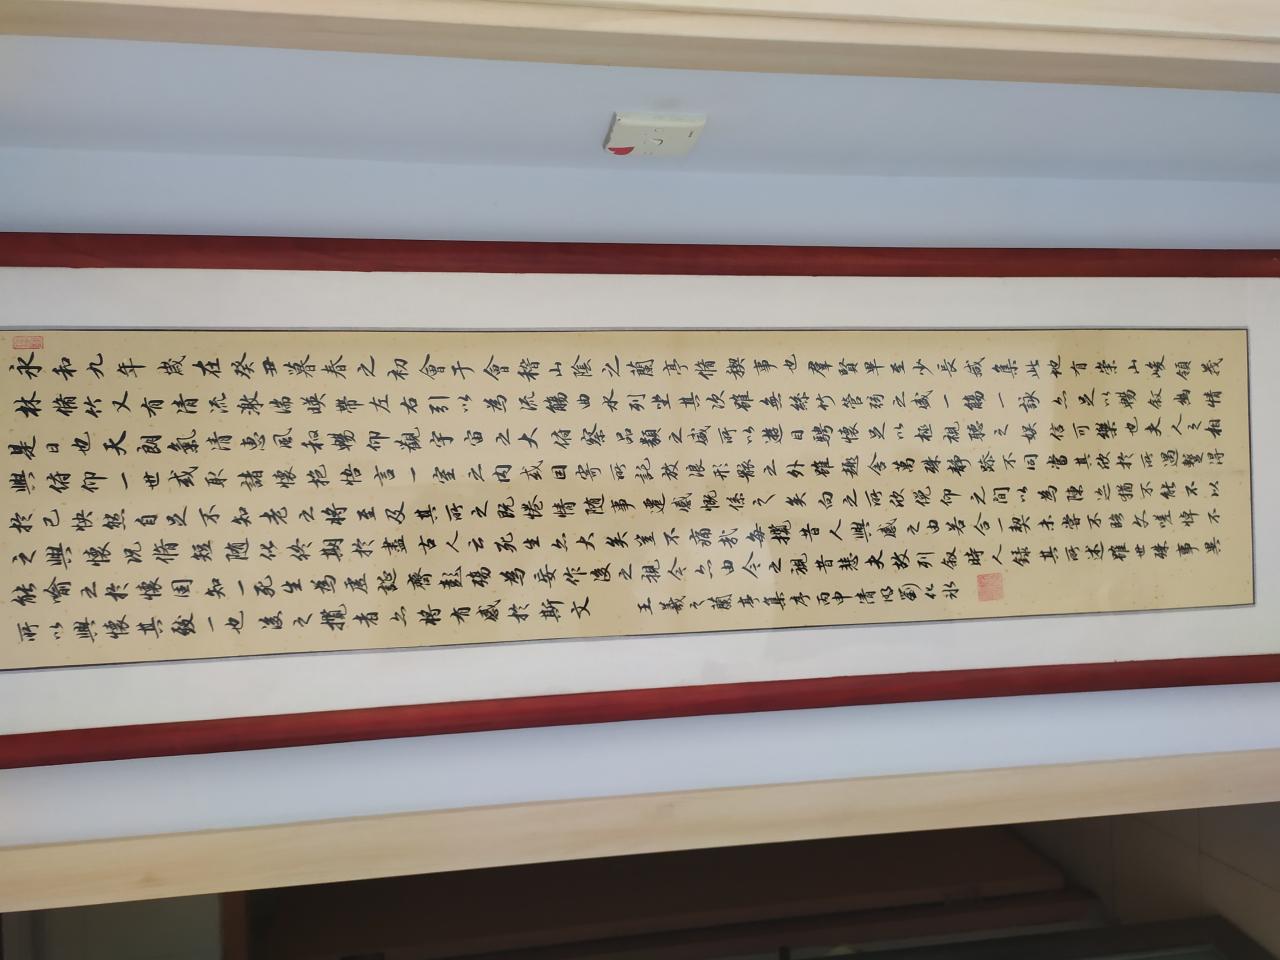 永和九年歲在癸丑暮春之初會于會稽山陰之蘭亭脩禊事也羣賢畢至少長咸集此地有崇山峻領茂
林脩竹又有清流激湍暎帶左右引以為流觴曲水列坐其次雖無絲竹管弦之盛一觴一詠亦足以暢敘幽情
是日也天朗氣清惠風和暢仰觀宇宙之大俯察品類之盛所以遊目騁懷足以極視聽之娛信可樂也夫人之相
與俯仰一世或取諸懷抱悟言一室之內或因寄所託放浪形骸之外雖趣舍萬殊靜躁不同當其欣於所遇蹔得
於己怏然自足不知老之將至及其所之既惓情隨事遷感慨係之矣向之所欣俛仰之間以為陳迹猶不能不以
之興懷況脩短隨化終期於盡古人云死生亦大矣豈不痛哉每攬昔人興感之由若合一契未嘗不臨文嗟悼不
能喻之於懷固知一死生為虛誕齊彭殤為妄作後之視今亦由今之視昔悲夫故列敘時人錄其所述雖世殊事異
所以興懷其致一也後之攬者亦將有感於斯文 王羲之蘭亭集序 丙申清明劉